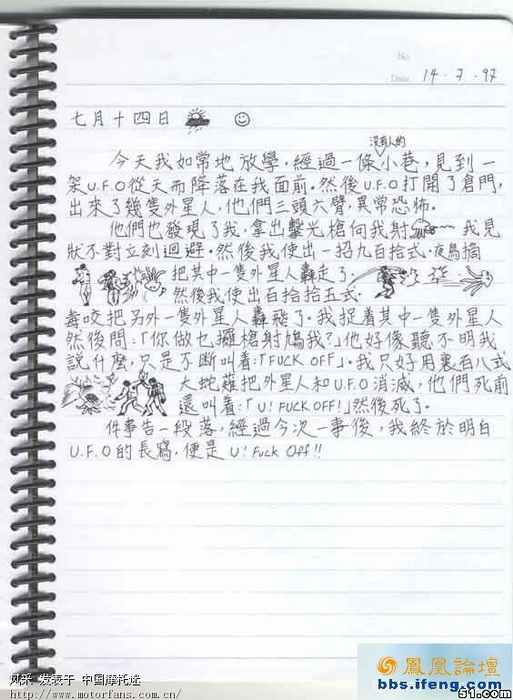 No.
Date 14 · 7 · 97
七月十四日
没有人的
今天我如常地放學，經過一條小巷，見到一
架U.F.O從天而降落在我面前。然後U.F.O打開了倉門，
出來了幾隻外星人，他們三頭六臂，異常恐怖。
他們也發現了我，拿出擊光槍向我射 我見
狀不對立刻迴避。然後我使出一招九百拾式·夜鳥摘
把其中一隻外星人轟走了。
然後我使出百拾拾五式·
毒咬把另外一隻外星人轟飛了。我捉着其中一隻外星人
然後問：「你做乜攞槍射鳩我？」他好像聽不明我
說什麼，只是不斷叫着：「FUCK OFF」。我只好用裏百八式
大蛇薙把外星人和U.F.O消滅，他們死前
還叫着：「U! FUCK OFF!」然後死了。
件事告一段落，經過今次一事後，我終於明白
U.F.O的長寫，便是U! Fuck Off!!
风采 发表于 中国摩托迷
http://www.motorfans.com.cn/
鳳凰論壇
bbs.ifeng.com
51.com